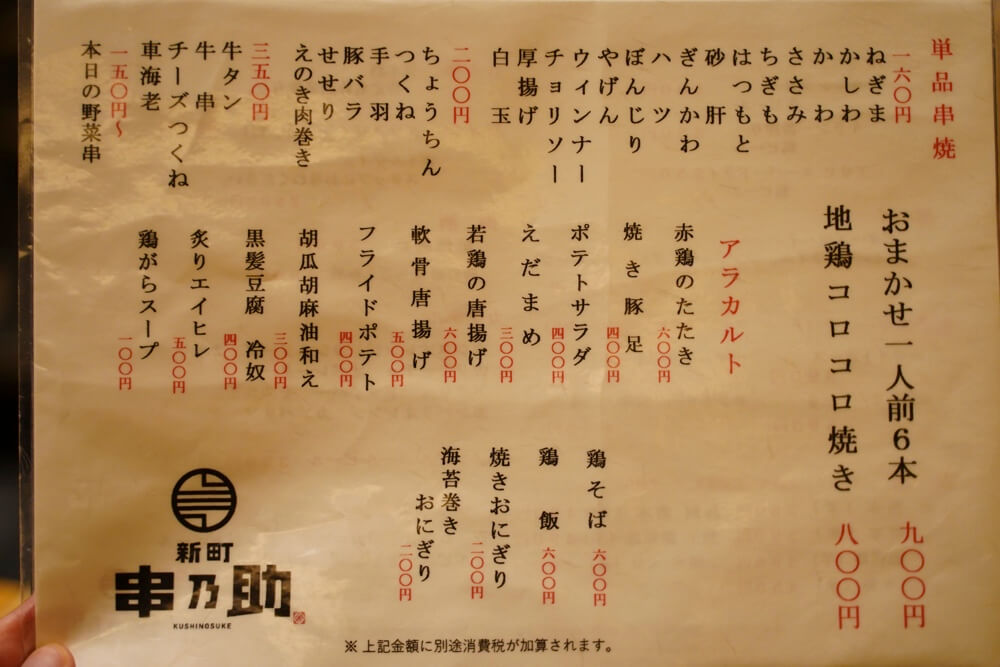 単品串焼
一六〇円
ねぎま
かしわ
かわ
ささみ
ちぎも
はつもと
砂肝
ぎんかわ
ハツ
ぼんじり
やげん
ウィンナー
チョリソー
厚揚げ
白玉
二〇〇円
ちょうちん
つくね
手羽
豚バラ
せせり
えのき肉巻き
三五〇円
牛タン
牛串
チーズつくね
車海老
一五〇円～
本日の野菜串
おまかせ一人前6本 九〇〇円
地鶏コロコロ焼き 八〇〇円
アラカルト
赤鶏のたたき 六〇〇円
焼き豚足 四〇〇円
ポテトサラダ 四〇〇円
えだまめ 三〇〇円
若鶏の唐揚げ 六〇〇円
軟骨唐揚げ 五〇〇円
フライドポテト 四〇〇円
胡瓜胡麻油和え 三〇〇円
黒髪豆腐 冷奴 四〇〇円
炙りエイヒレ 五〇〇円
鶏がらスープ 一〇〇円
鶏そば 六〇〇円
鶏飯 六〇〇円
焼きおにぎり 二〇〇円
海苔巻き
おにぎり 二〇〇円
新町
串乃助
KUSHINOSUKE
※上記金額に別途消費税が加算されます。